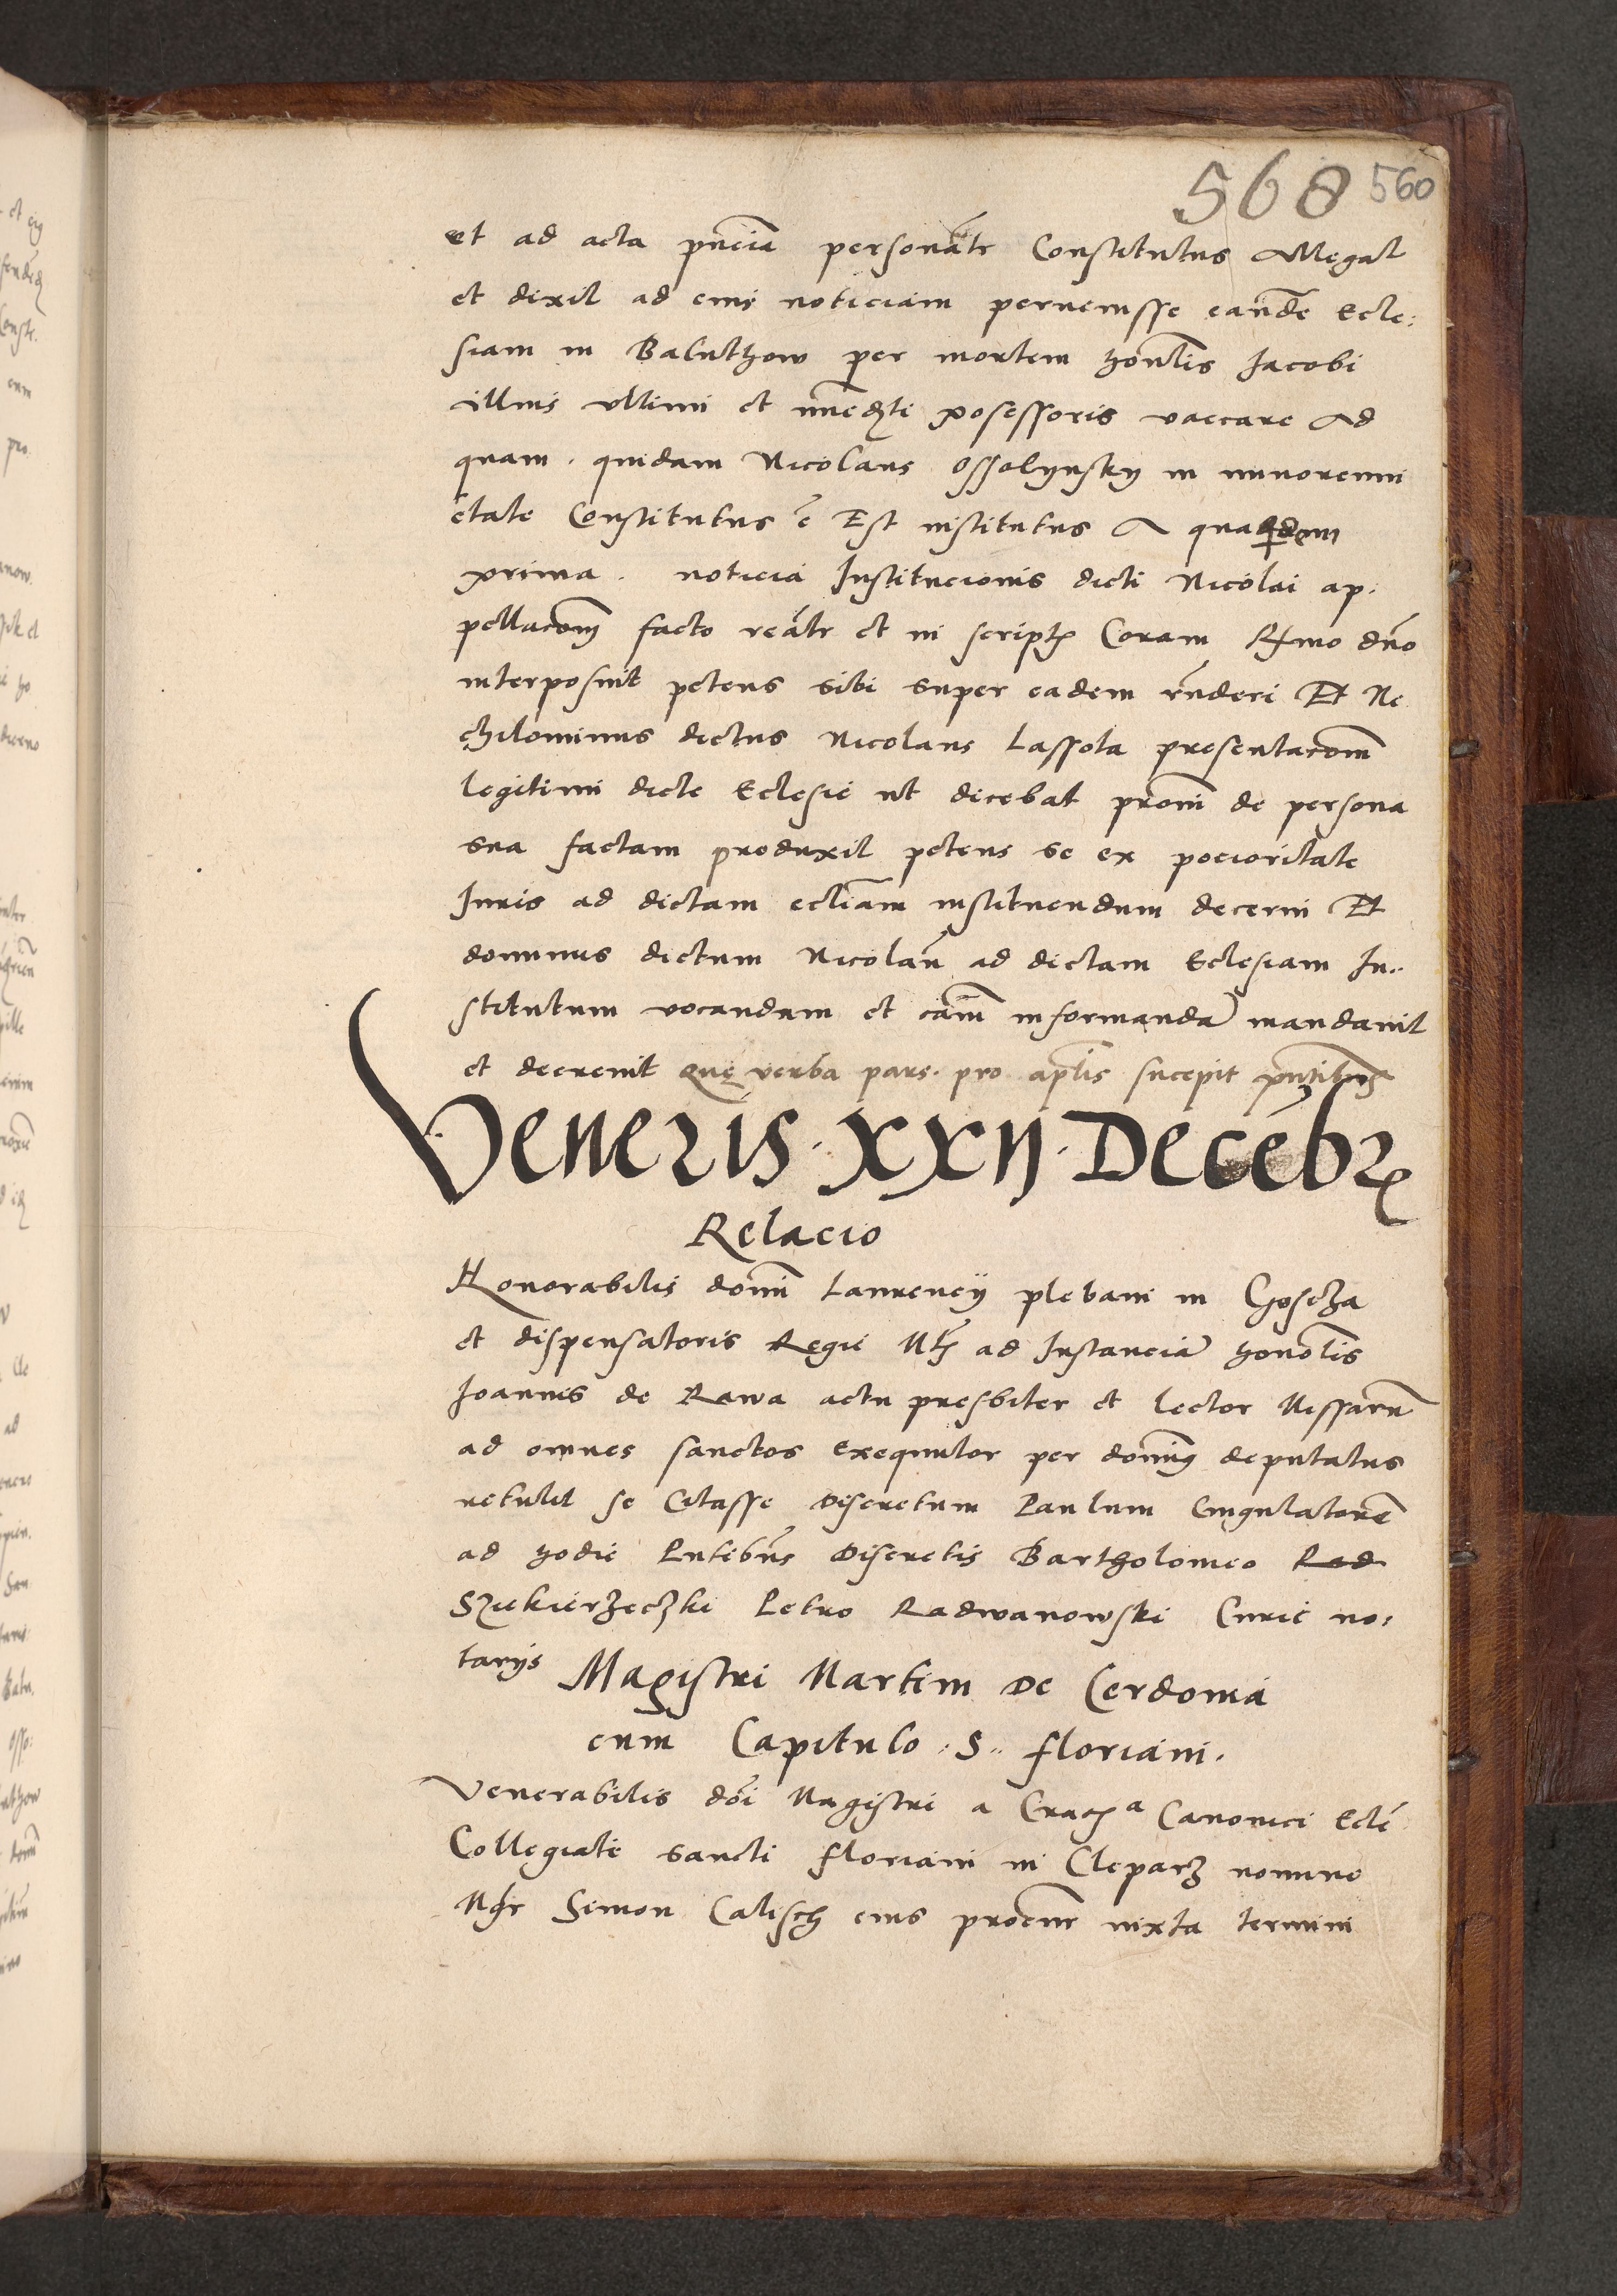 568 560
et ad acta pñcia personaltr Constitutus Allegat
et dixit ad eius noticiam pervenisse eandē Ecle:
siam in Baluthow per mortem honlis Jacobi
illius ultimi et possessoris vaccare Ad
quam quidam Nicolaus Ossolynsky in minorenni
etate Constitutus ē Est institutus A qua
prima noticia Institucionis dicti Nicolai ap
pellacoem facto realr et in script Coram Rmo dno
interposuit petens sibi super eadem rnderi Et Ne
chilominus dictus Nicolaus Lassota presentacoem
legitimi dicte Eclesie ut dicebat proni de persona
sua factam produxit petens se ex pocioritate
Juris ad dictam ecliam instituendum decerni Et
dominus dictum Nicolaū ad dictam Eclesiam In..
stitutum vocandum et cām informandā mandavit
et decrevit Que verba pars pro aplis sucepit pntibus
Veneris XXII Decēbr
Relacio
Honorabilis domi Laurencij plebani in Goscza
et dispensatoris Regie Mts ad Instanciā honolis
Joannis de Rawa actu presbiter et lector Missarū
ad omnes sanctos Exequutor per dominū deputatus
retulit se Citasse Discretum Paulum Cingulatorē
ad hodie Pntibus Discretis Bartholomeo Rad
Szukierzeczki Petro Radwanowski Curie no:
tarijs
Magistri Martini De Cerdonia
cum Capitulo S.. floriani.
Venerabilis dōi Magistri a Crac a Canonici Eclē
Collegiate sancti floriani in Cleparz nomine
Mgr Simon Calisch eius procur iuxta termini